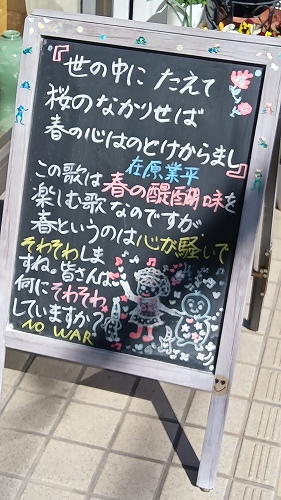 『世の中に たえて
桜のなかりせば
春の心はのどけからまし』
在原業平
この歌は春の醍醐味を
楽しむ歌なのですが
春というのは心が騒いで
そわそわしま
すね。皆さんは
何にそわそわ
していますか?
NO WAR